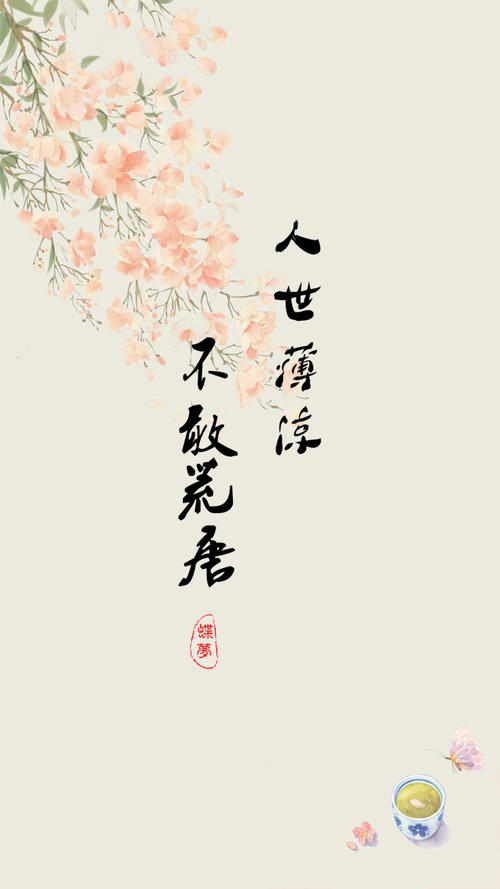 人世薄凉
不敢荒唐
蝶夢